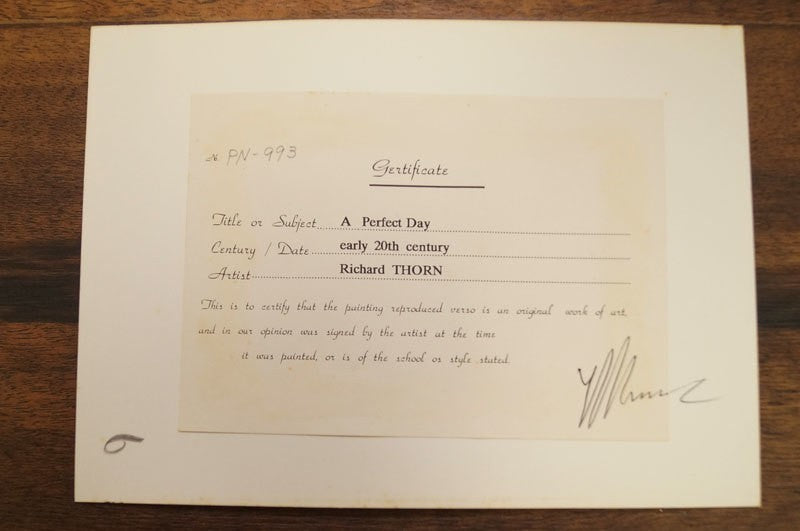 № PN-993
Certificate
Title or Subject A Perfect Day
Century / Date early 20th century
Artist Richard THORN
This is to certify that the painting reproduced verso is an original work of art,
and in our opinion was signed by the artist at the time
it was painted, or is of the school os style stated.
6